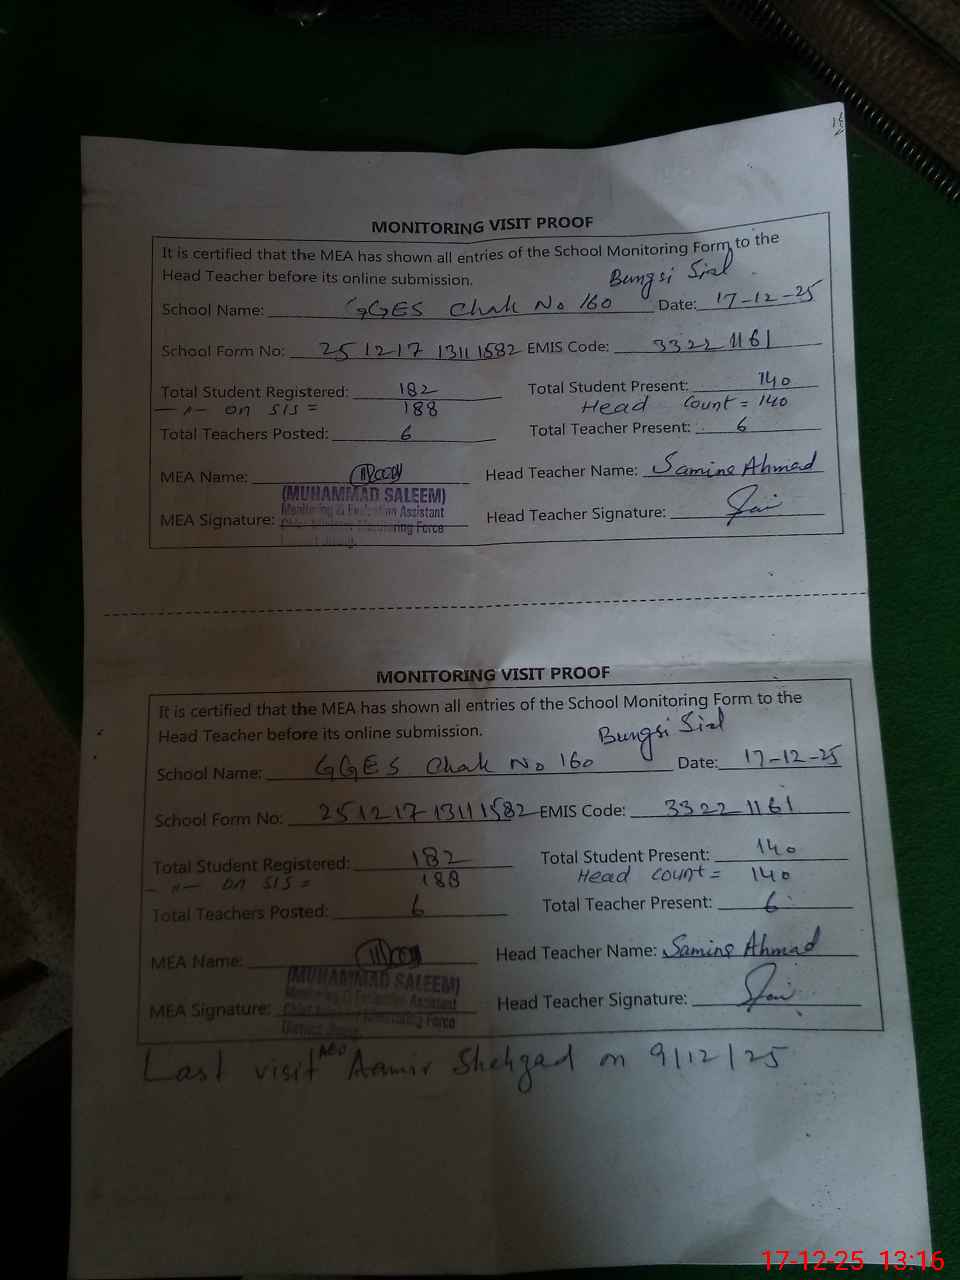 MONITORING VISIT PROOF
It is certified that the MEA has shown all entries of the School Monitoring Form to the
Head Teacher before its online submission.
Bungsi Sial
School Name: GGES Chak No 160 Date: 17-12-25
School Form No: 25121713111582 EMIS Code: 33221161
Total Student Registered: 182 Total Student Present: 140
on SIS = 188 Head Count = 140
Total Teachers Posted: 6 Total Teacher Present: 6
MEA Name: Head Teacher Name: Samine Ahmad
(MUHAMMAD SALEEM)
Monitoring & Evaluation Assistant
MEA Signature: Head Teacher Signature:
Chief Minister Monitoring Force
MONITORING VISIT PROOF
It is certified that the MEA has shown all entries of the School Monitoring Form to the
Head Teacher before its online submission.
Bungsi Sial
School Name: GGES Chak No 160 Date: 17-12-25
School Form No: 25121713111582 EMIS Code: 33221161
Total Student Registered: 182 Total Student Present: 140
on SIS = 188 Head count = 140
Total Teachers Posted: 6 Total Teacher Present: 6
MEA Name: Head Teacher Name: Samine Ahmad
(MUHAMMAD SALEEM)
Monitoring & Evaluation Assistant
MEA Signature: Head Teacher Signature:
Chief Minister Monitoring Force
Last visit AEO Aamir Shehzad on 9/12/25
17-12-25 13:16